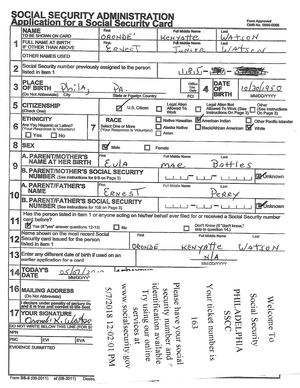 SOCIAL SECURITY ADMINISTRATION
Application for a Social Security Card
Form Approved
OMB No. 0960-0066
1 NAME TO BE SHOWN ON CARD First ORONDE Full Middle Name KENYATTE Last WATSON
FULL NAME AT BIRTH IF OTHER THAN ABOVE First ERNEST Full Middle Name JUNIOR Last WATSON
OTHER NAMES USED
2 Social Security number previously assigned to the person listed in item 1
3 PLACE OF BIRTH (Do Not Abbreviate) City Phila State or Foreign Country PA. FCI 4 DATE OF BIRTH 10/30/1950 MM/DD/YYYY
5 CITIZENSHIP (Check One) U.S. Citizen Legal Alien Allowed To Work Legal Alien Not Allowed To Work (See Instructions On Page 3) Other (See Instructions On Page 3)
6 ETHNICITY Are You Hispanic or Latino? (Your Response is Voluntary) Yes No 7 RACE Select One or More (Your Response is Voluntary) Native Hawaiian Alaska Native Asian American Indian Black/African American Other Pacific Islander White
8 SEX Male Female
9 A. PARENT/MOTHER'S NAME AT HER BIRTH First EULA Full Middle Name MAE Last Battles
B. PARENT/MOTHER'S SOCIAL SECURITY NUMBER (See instructions for 9 B on Page 3) Unknown
10 A. PARENT/FATHER'S NAME First ERNEST Full Middle Name Last PERRY
B. PARENT/FATHER'S SOCIAL SECURITY NUMBER (See instructions for 10B on Page 3) Unknown
11 Has the person listed in item 1 or anyone acting on his/her behalf ever filed for or received a Social Security number card before?
Yes (If "yes" answer questions 12-13) No Don't Know (If "don't know," skip to question 14.)
12 Name shown on the most recent Social Security card issued for the person listed in item 1 First ORONDE Full Middle Name KENYATTE Last WATSON
13 Enter any different date of birth if used on an earlier application for a card N/A MM/DD/YYYY
14 TODAY'S DATE
16 MAILING ADDRESS (Do Not Abbreviate)
I declare under penalty of perjury
17 YOUR SIGNATURE
DO NOT WRITE BELOW THIS LINE (FOR
NPN
PBC EVI EVA
EVIDENCE SUBMITTED
Form SS-5 (08-2011) ef (08-2011) Destroy
Welcome To
Social Security
PHILADELPHIA
SSCC
Your ticket number is
163
Please have your social
security number and/or
identification available
Try using our online
services at
www.socialsecurity.gov
5/7/2018 12:02:01 PM